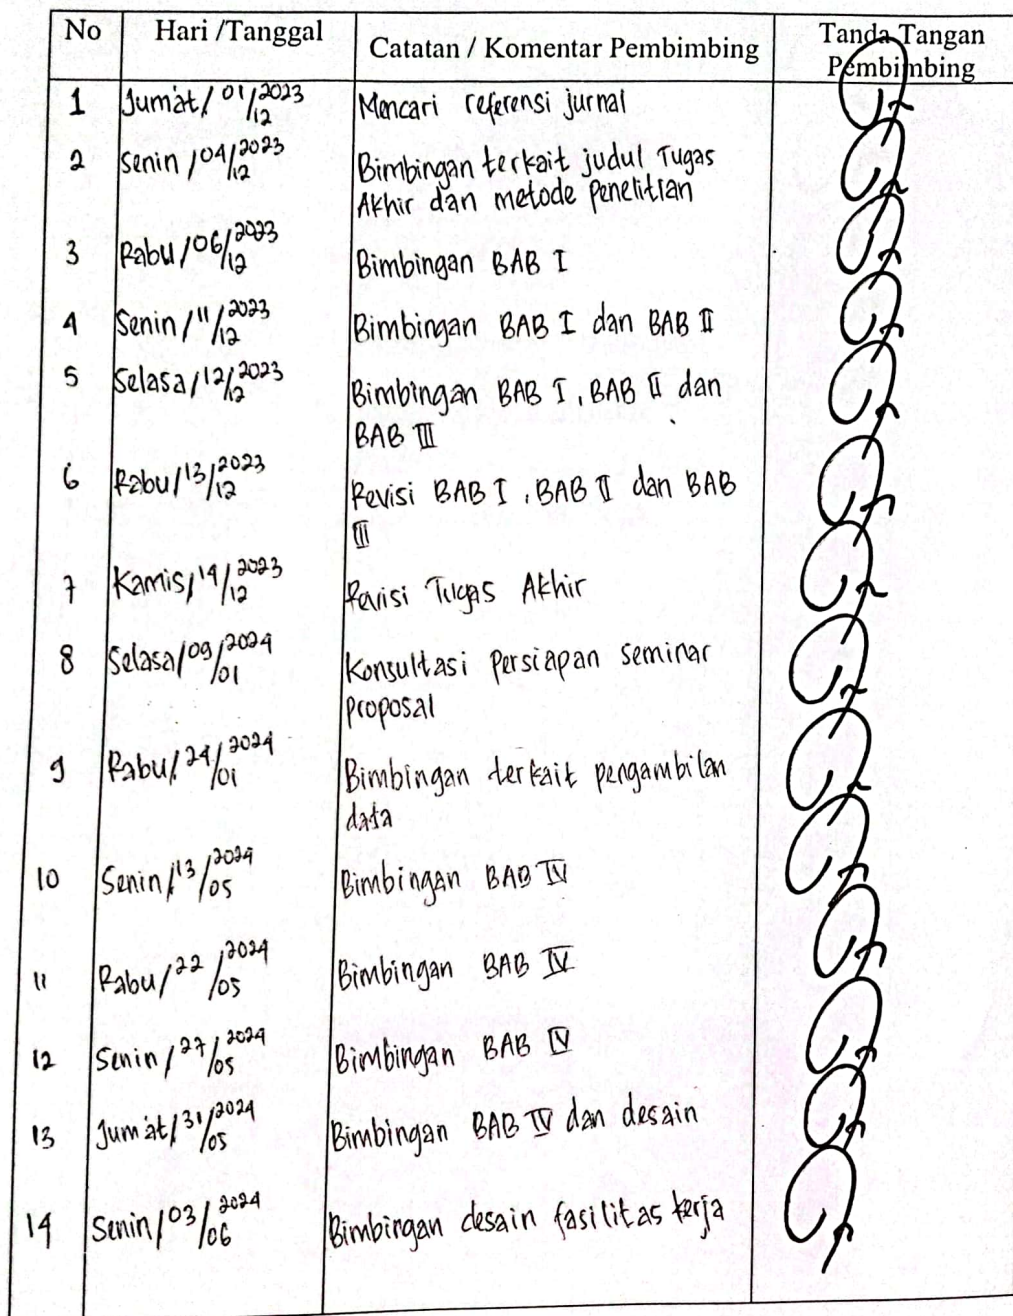 No Hari /Tanggal Catatan / Komentar Pembimbing Tanda Tangan Pembimbing
1 Jumat/ 01/12 2023 Mencari referensi jurnal
2 Senin /04/12 2023 Bimbingan terkait judul Tugas
Akhir dan metode Penelitian
3 Rabu /06/12 2023 Bimbingan BAB I
4 Senin /11/12 2023 Bimbingan BAB I dan BAB II
5 Selasa /12/12 2023 Bimbingan BAB I, BAB II dan
BAB III
6 Rabu/13/12 2023 Revisi BAB I, BAB II dan BAB
III
7 Kamis/14/12 2023 Revisi Tugas Akhir
8 Selasa/09/01 2024 Konsultasi Persiapan seminar
proposal
9 Rabu/24/01 2024 Bimbingan terkait pengambilan
data
10 Senin/13/05 2024 Bimbingan BAB IV
11 Rabu/22/05 2024 Bimbingan BAB IV
12 Senin/27/05 2024 Bimbingan BAB IV
13 Jumat/31/05 2024 Bimbingan BAB IV dan desain
14 Senin/03/06 2024 Bimbingan desain fasilitas kerja